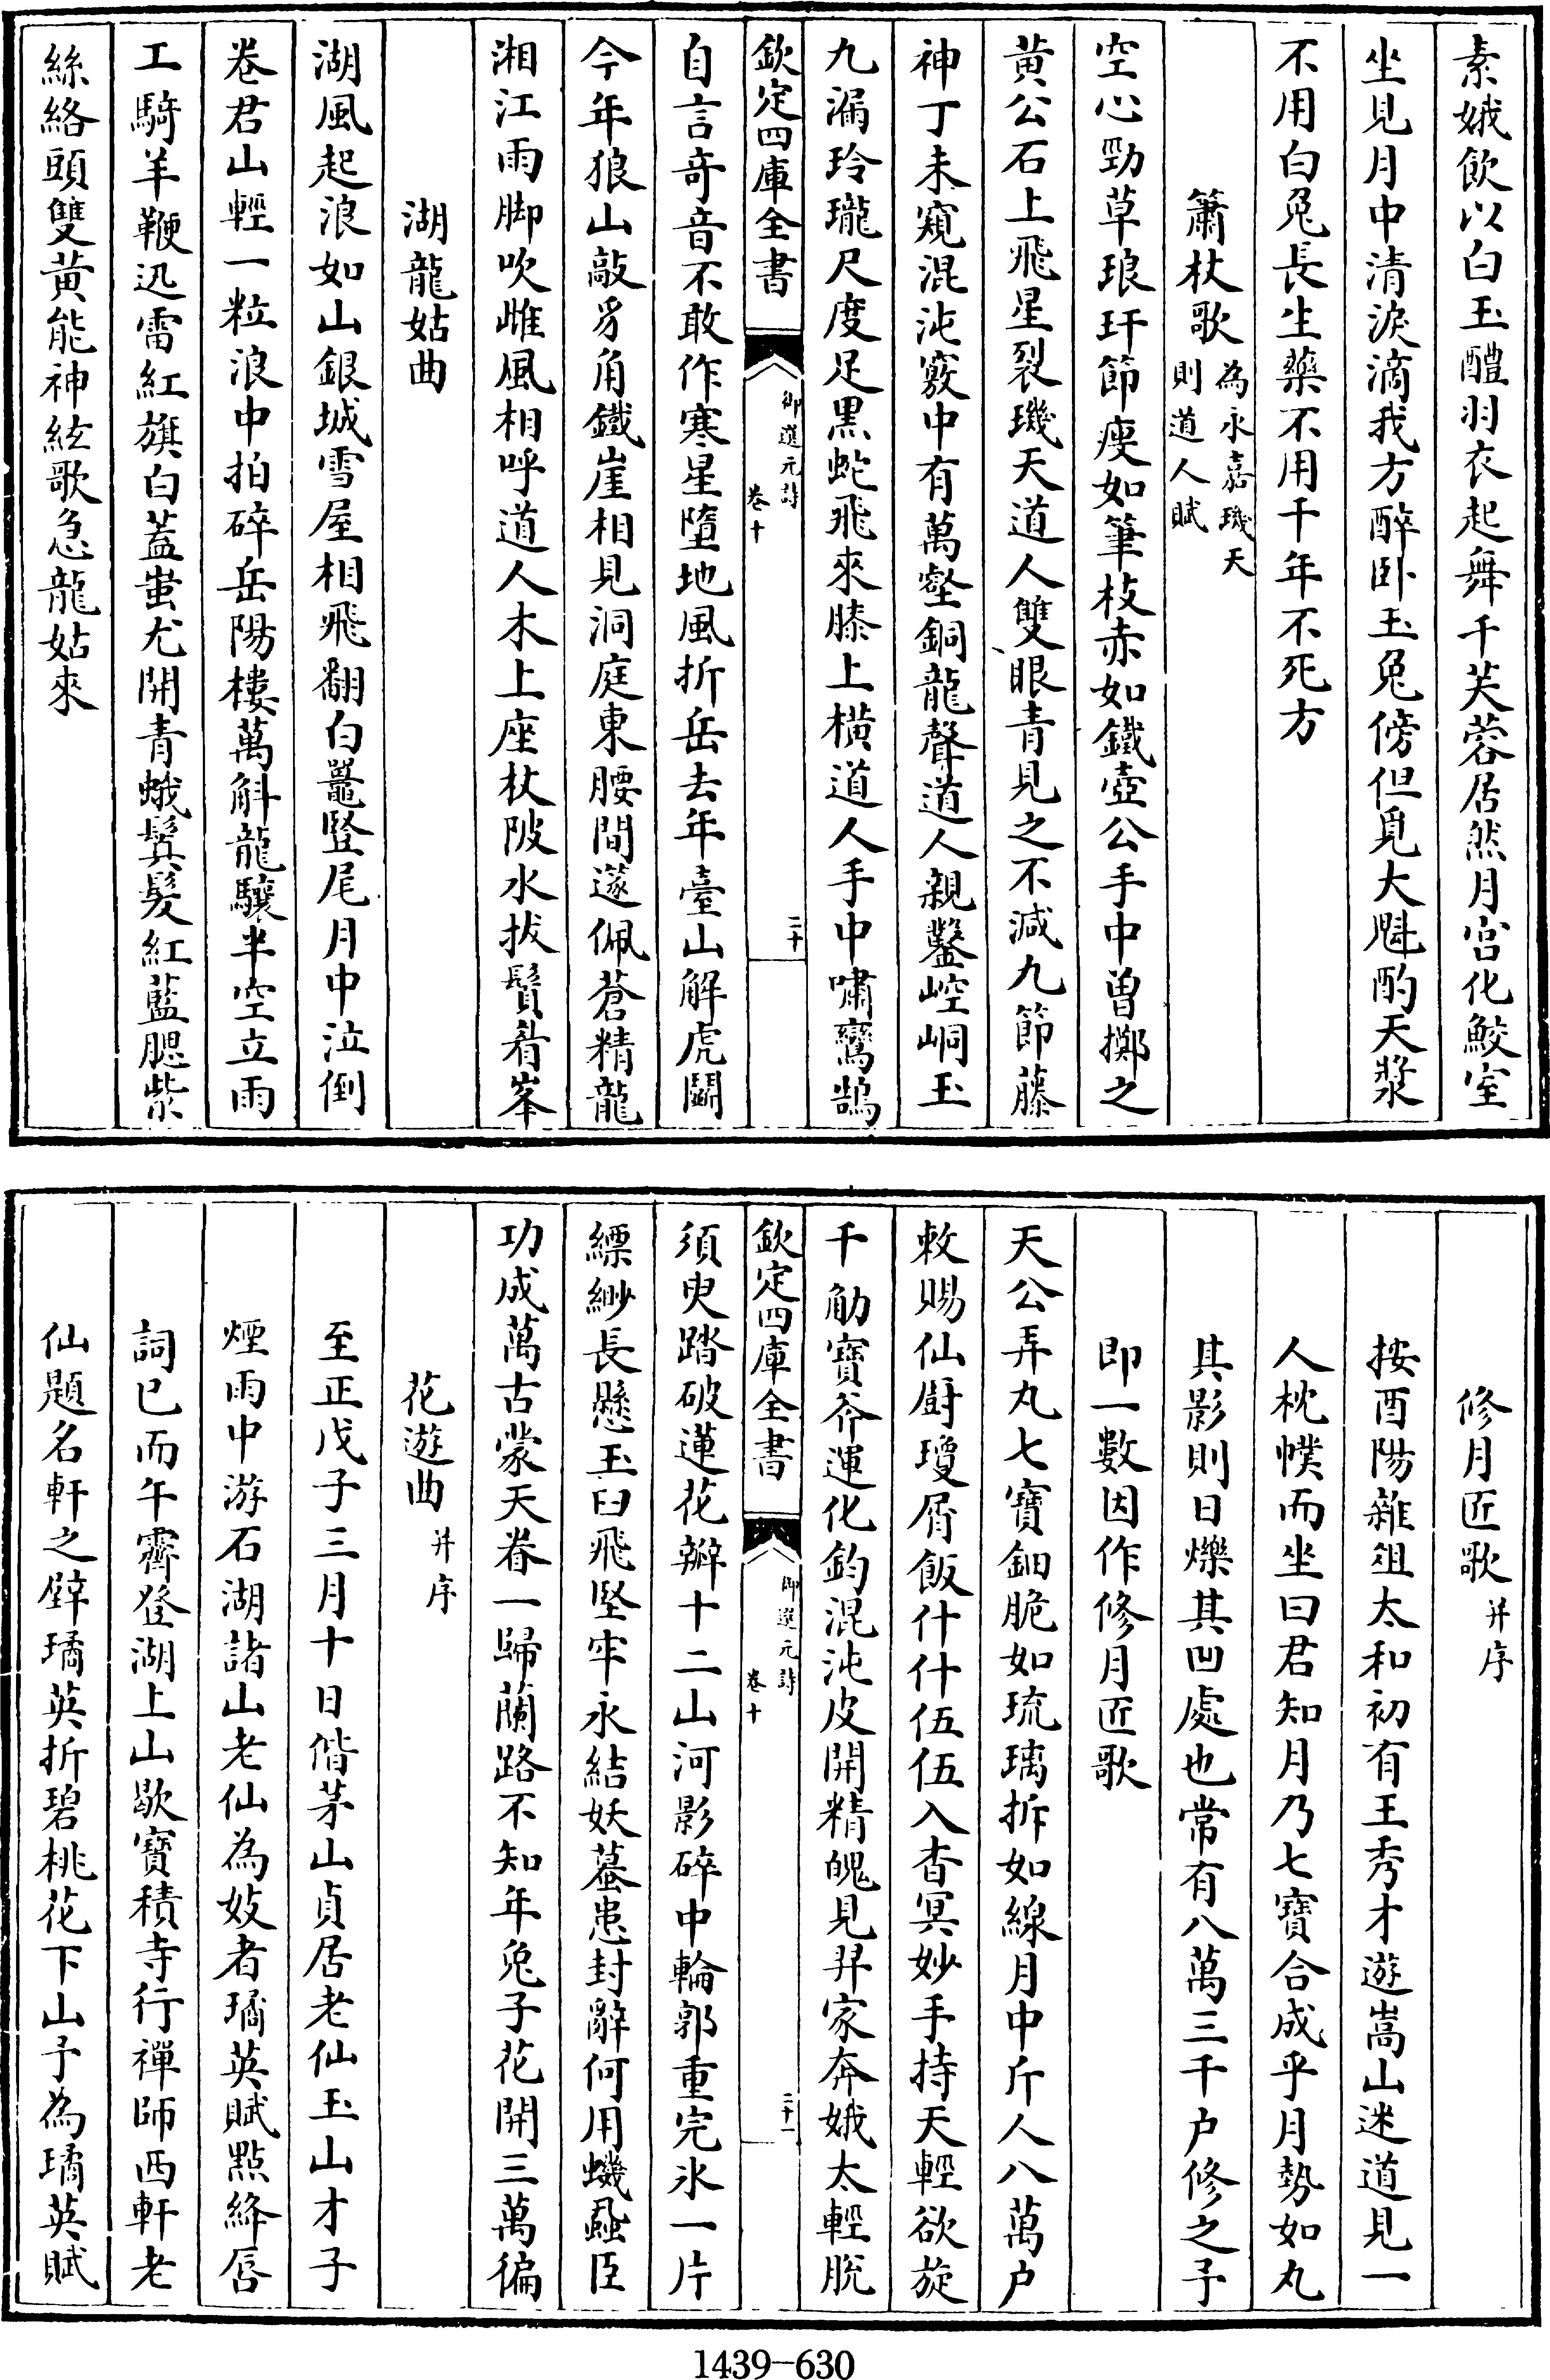 素娥飲以白玉醴羽衣起舞千芙蓉居然月宮化鮫室
坐見月中清淚滴我方醉卧玉兔傍但覓大魁酌天漿
不用白兔長生藥不用千年不死方
簫杖歌為永嘉璣天
則道人賦
空心勁草琅玕節瘦如筆枝赤如鐵壺公手中曽擲之
黄公石上飛星裂璣天道人雙眼青見之不減九節藤
神丁未窺混沌竅中有萬壑銅龍聲道人親鑿崆峒玉
九漏玲瓏尺度足黒蛇飛來膝上橫道人手中嘯鸞鵠
欽定四庫全書
御選元詩
卷十
二十
自言奇音不敢作寒星墮地風折岳去年臺山解虎鬭
今年狼山敲豸角鐵崖相見洞庭東腰間遂佩蒼精龍
湘江雨脚吹雌風相呼道人木上座杖陂水拔鬚眷峯
湖龍姑曲
湖風起浪如山銀城雪屋相飛翻白鼉豎尾月中泣倒
卷君山輕一粒浪中拍碎岳陽樓萬斛龍驤半空立雨
工騎羊鞭迅雷紅旗白蓋蚩尤開青蛾鬒髮紅藍腮紫
絲絡頭雙黄能神絃歌急龍姑來
修月匠歌并序
按酉陽雜俎太和初有王秀才遊嵩山迷道見一
人枕幞而坐曰君知月乃七寶合成乎月勢如丸
其影則日爍其凹處也常有八萬三千户修之予
即一數因作修月匠歌
天公弄丸七寶鈿脆如琉璃拆如線月中斤人八萬户
敕賜仙廚瓊屑飯什什伍伍入杳冥妙手持天輕欲旋
千觔寶斧運化鈞混沌皮開精魄見羿家奔娥太輕脫
欽定四庫全書
御選元詩
卷十
二十一
須臾踏破蓮花瓣十二山河影碎中輪郭重完氷一片
縹緲長懸玉臼飛堅牢永結妖蟇患封辭何用蟣蝨臣
功成萬古蒙天眷一歸蘭路不知年兔子花開三萬徧
花遊曲并序
至正戊子三月十日偕茅山貞居老仙玉山才子
煙雨中游石湖諸山老仙為妓者璚英賦點絳唇
詞已而午霽登湖上山歇寶積寺行禪師西軒老
仙題名軒之壁璚英折碧桃花下山予為璚英賦
1439-630